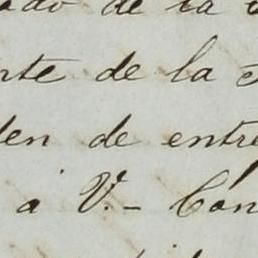 de la
nte de la
den de entre
á V.- Con